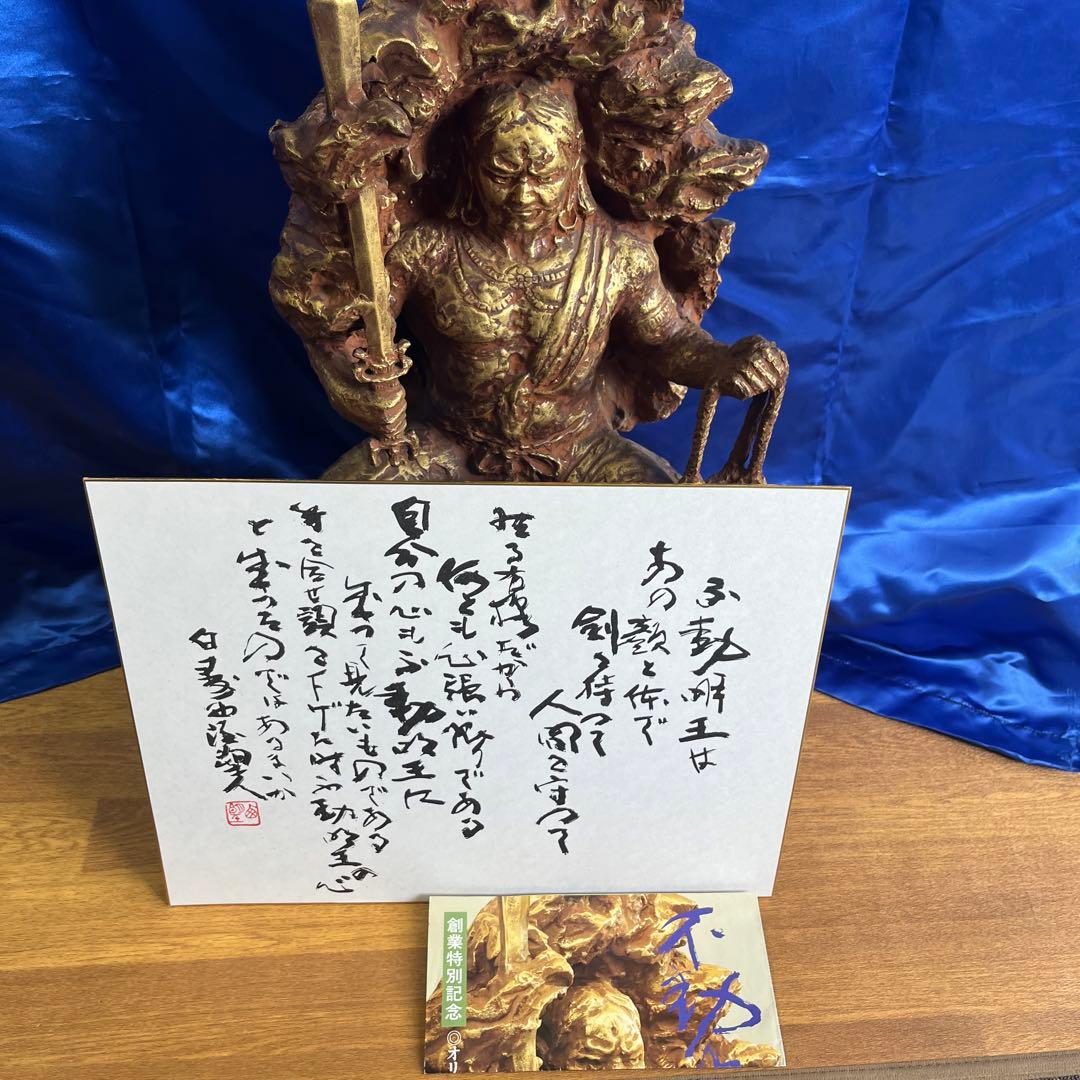 不動明王は
あの顔と体で
剣を持つて
人間を守つて
居る有様だから
何とも心強い限りである
自分の心も不動明王に
成つて見たいものである
手を合せ頭を下げた時不動明王の心
と成つたのではあるまいか
西望
不動
創業特別記念
◎オリ